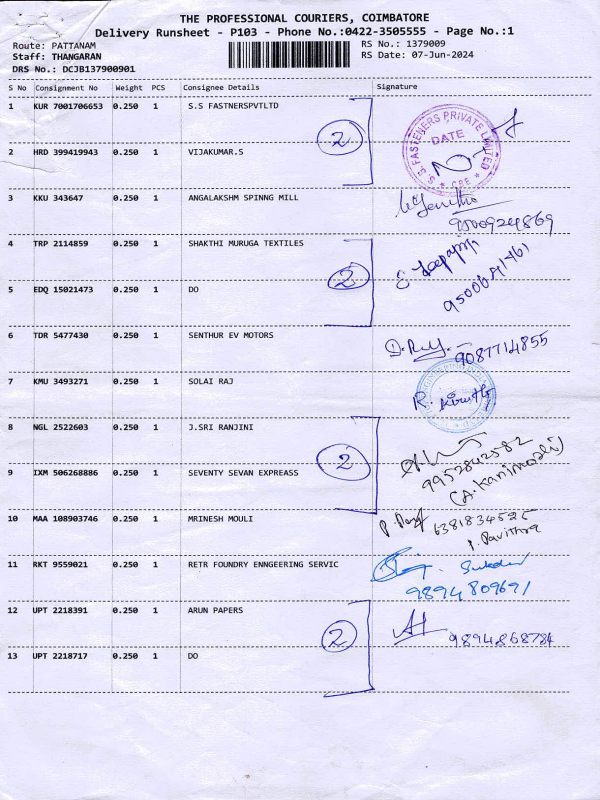 THE PROFESSIONAL COURIERS, COIMBATORE
Delivery Runsheet - P103 - Phone No.:0422-3505555 - Page No.:1
Route: PATTANAM
RS No.: 1379009
Staff: THANGARAN
RS Date: 07-Jun-2024
DRS No.: DCJB137900901
S No Consignment No Weight PCS Consignee Details Signature
1 KUR 7001706653 0.250 1 S.S FASTNERSPVTLTD
2
S.S. FASTENERS PRIVATE LIMITED
DATE
CBE
2 HRD 399419943 0.250 1 VIJAKUMAR.S
3 KKU 343647 0.250 1 ANGALAKSHM SPINNG MILL
9500924869
4 TRP 2114859 0.250 1 SHAKTHI MURUGA TEXTILES
2
5 EDQ 15021473 0.250 1 DO
6 TDR 5477430 0.250 1 SENTHUR EV MOTORS
9087714855
7 KMU 3493271 0.250 1 SOLAI RAJ
8 NGL 2522603 0.250 1 J.SRI RANJINI
2
9952842582
(A.Kanimozhi)
9 IXM 506268886 0.250 1 SEVENTY SEVAN EXPREASS
10 MAA 108903746 0.250 1 MRINESH MOULI
6381834525
P. Pavithra
11 RKT 9559021 0.250 1 RETR FOUNDRY ENNGEERING SERVIC
9894809691
12 UPT 2218391 0.250 1 ARUN PAPERS
2
9894868784
13 UPT 2218717 0.250 1 DO